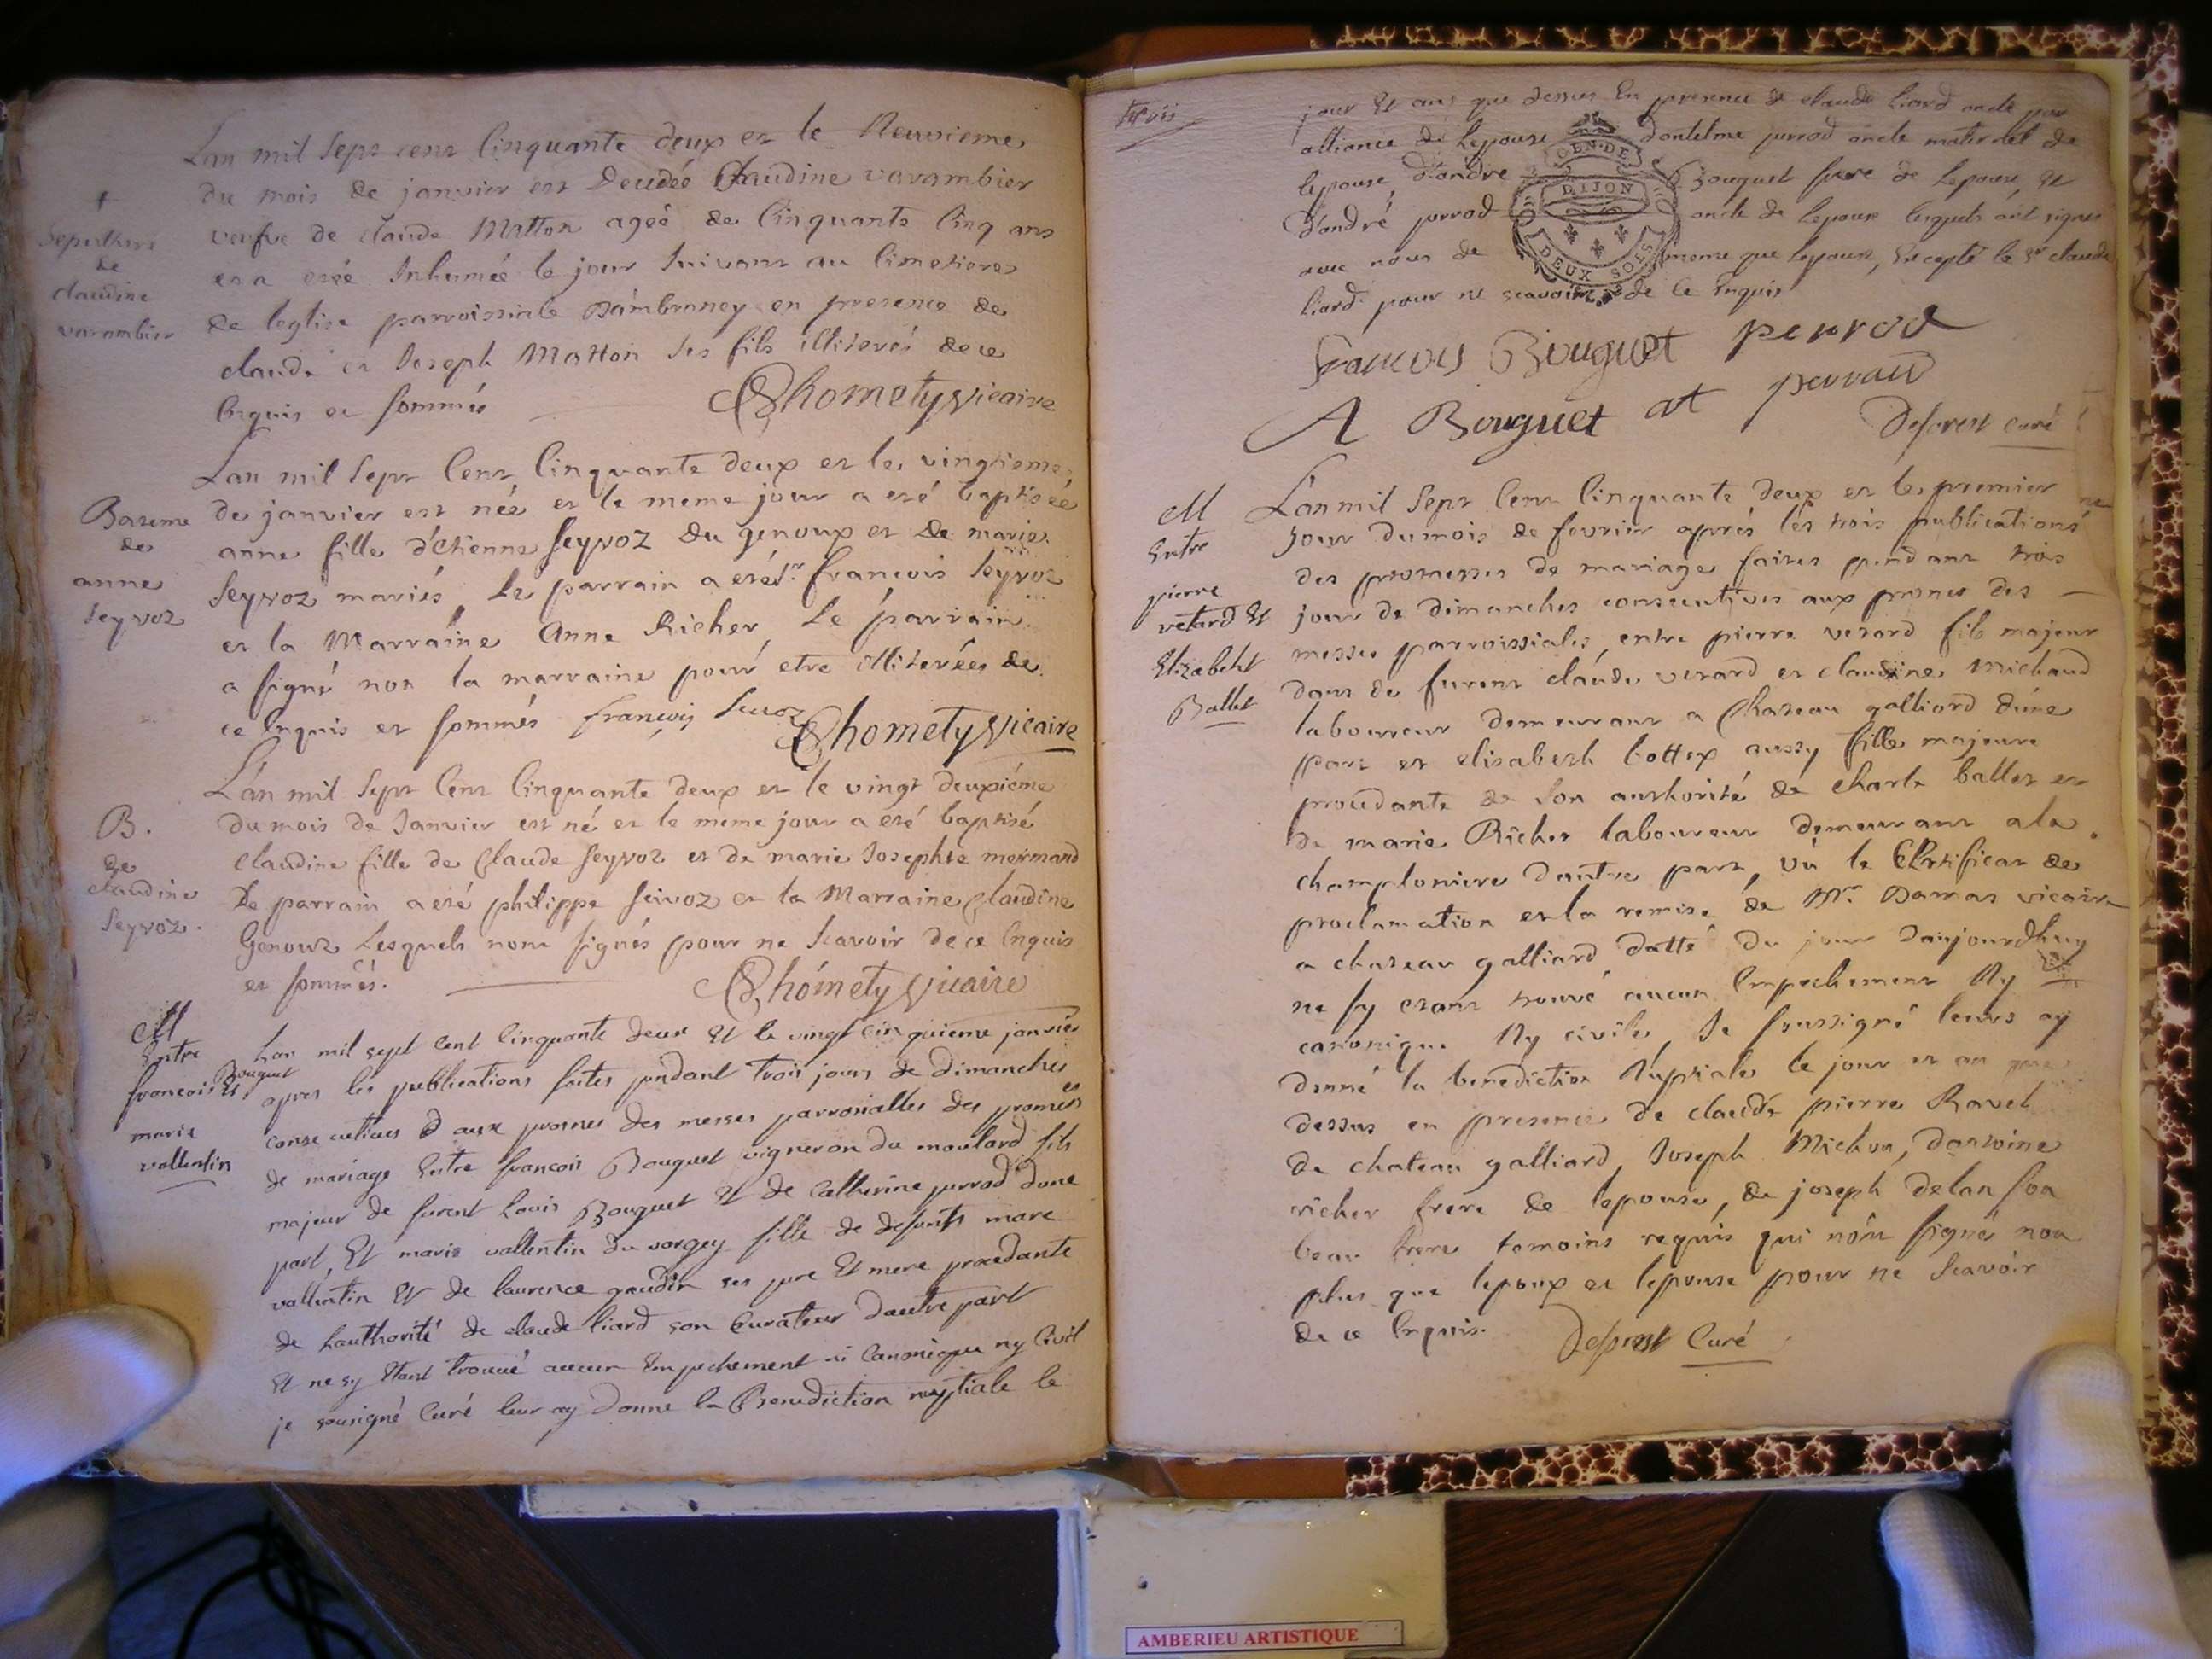 Lan mil sept cent cinquante deux et le Neuvieme
du mois de janvier est decedée Claudine varambier
veufve de claude Matton ageé de cinquante cinq ans
et a etée Inhumée le jour suivant au cimetiere
de leglise parroissiale Dambroney en presence de
claude et Joseph Matton ses fils illiterés de ce
enquis et sommés
Chomety vicaire
+
Sepulture
de
claudine
varambier
Lan mil sept cent cinquante deux et le vingtieme
de janvier est née et le meme jour a eté baptiseé
anne fille d'etienne seyvoz du genoux et de marie
seyvoz mariés, Le parrain a eté sr. francois seyvoz
et la Marraine Anne Richer, Le parrain
a signé non la marraine pour etre illiterées de
ce enquis et sommés françois
Chomety Vicaire
Bateme
de
anne
seyvoz
L'an mil sept cent cinquante deux et le vingt deuxiéme
du mois de Janvier est né et le meme jour a eté baptisé
claudine fille de Claude seyvoz et de marie Josephte mermand
Le parrain a eté philippe seivoz et la Marraine Claudine
Genoux Lesquels nont signés pour ne scavoir de ce enquis
et sommés.
Chomety vicaire
B.
de
claudine
seyvoz.
Lan mil sept cent cinquante deux Et le vingt cinquieme janvier
apres les publications faites pendant trois jours de dimanches
consecutives d aux prosnes des messes parroissialles des promesses
de mariage Entre francois Bouguet vigneron du moulard fils
majeur de furent Louis Bouguet Et de Catherine perrod d'une
part, Et marie vallentin du vorgey fille de defunts marc
vallentin Et de laurence gaudin ses pere Et mere procedante
de Lauthorité de claude liard son Curateur dautre part
Et ne sy Etant trouvé aucun Empechement ni Canonique ny Civil
je sousigné Curé leur ay donne la Benediction nuptiale le
M
Entre
francois Bouguet Et
marie
vallentin
jour Et ans que dessus En presence de claude Liard oncle par
alliance de Lepouse d'antelme perrod oncle maternel de
lepouse, d'andre Bouguet frere de Lepoux, Et
d'andré perrod oncle de lepoux lesquels ont signes
avec nous de meme que lepoux, Excepté le sr claude
liard pour ne scavoir de ce Enquis
GEN. DE
DIJON
DEUX SOLS
francois Bouguet perrod
A Bouguet at perraud
Deforest curé
L'an mil sept cent cinquante deux et le premier
Jour du mois de fevrier aprés les trois publications
des promesses de mariage faites pendant trois
jour de dimanches consecutives aux prones des
messes parroissiales, entre pierre verard fils majeur
dans de furent claude verard et claudine Michaud
laboureur demeurant a Chateau galliard d'une
part et elisabeth bottex aussy fille majeure
procedante de son authorité de charle ballet et
de marie Richer laboureur demeurant a la
champloniere dautre part, vû le Certificat de
proclamation et la remise de Mr. Damas vicaire
a chateau galliard datté du jour daujourdhuy
ne sy etant trouvé aucun Empechement Ny
canonique Ny civile, Je soussigné leurs ay
donné la benediction Nuptiale le jour et an que
dessus en presence de claude pierre Ravet
de chateau galliard, Joseph Michon, dantoine
richer frere de lepouse, de joseph delan son
beau frere temoins requis qui n'ont signé non
plus que lepoux et lepouse pour ne scavoir
de ce Enquis.
Deforest Curé
M
Entre
pierre
verard Et
Elizabeht
Ballet